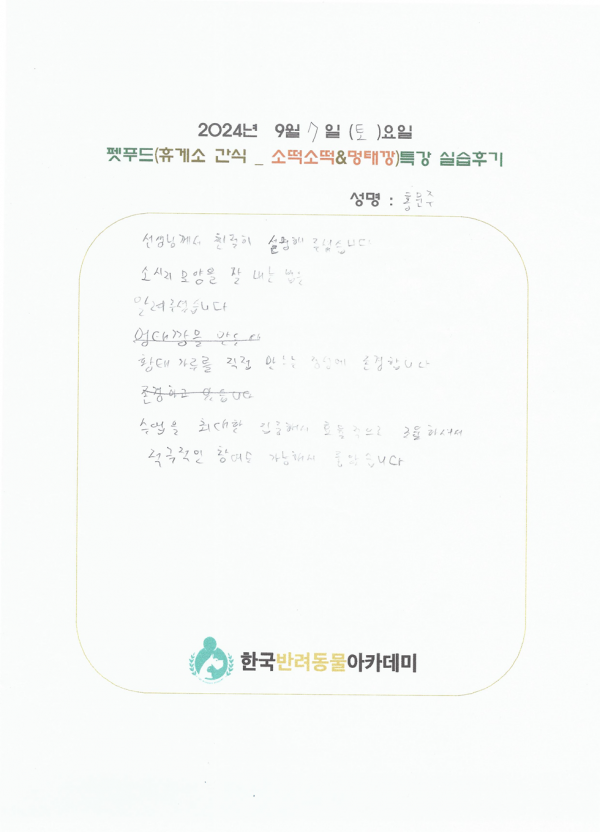 2024년 9월 7일 (토)요일
펫푸드(휴게소 간식 _ 소떡소떡&멍태깡)특강 실습후기
성명 : 홍은주
선생님께서 친절히 설명해 주셨습니다
소시지 모양을 잘 내는 법을
알려주셨습니다
멍태깡을
황태 가루를 직접 만드는 존경합니다
존경하고 있습니다
수업을 최대한 집중해서 하셔서
적극적인 참여도 가능해서 좋았습니다
한국반려동물아카데미